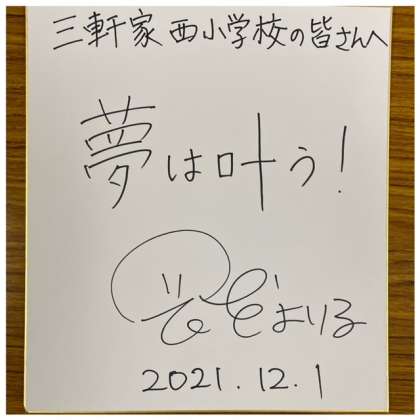 三軒家西小学校の皆さんへ
夢は叶う!
2021.12.1